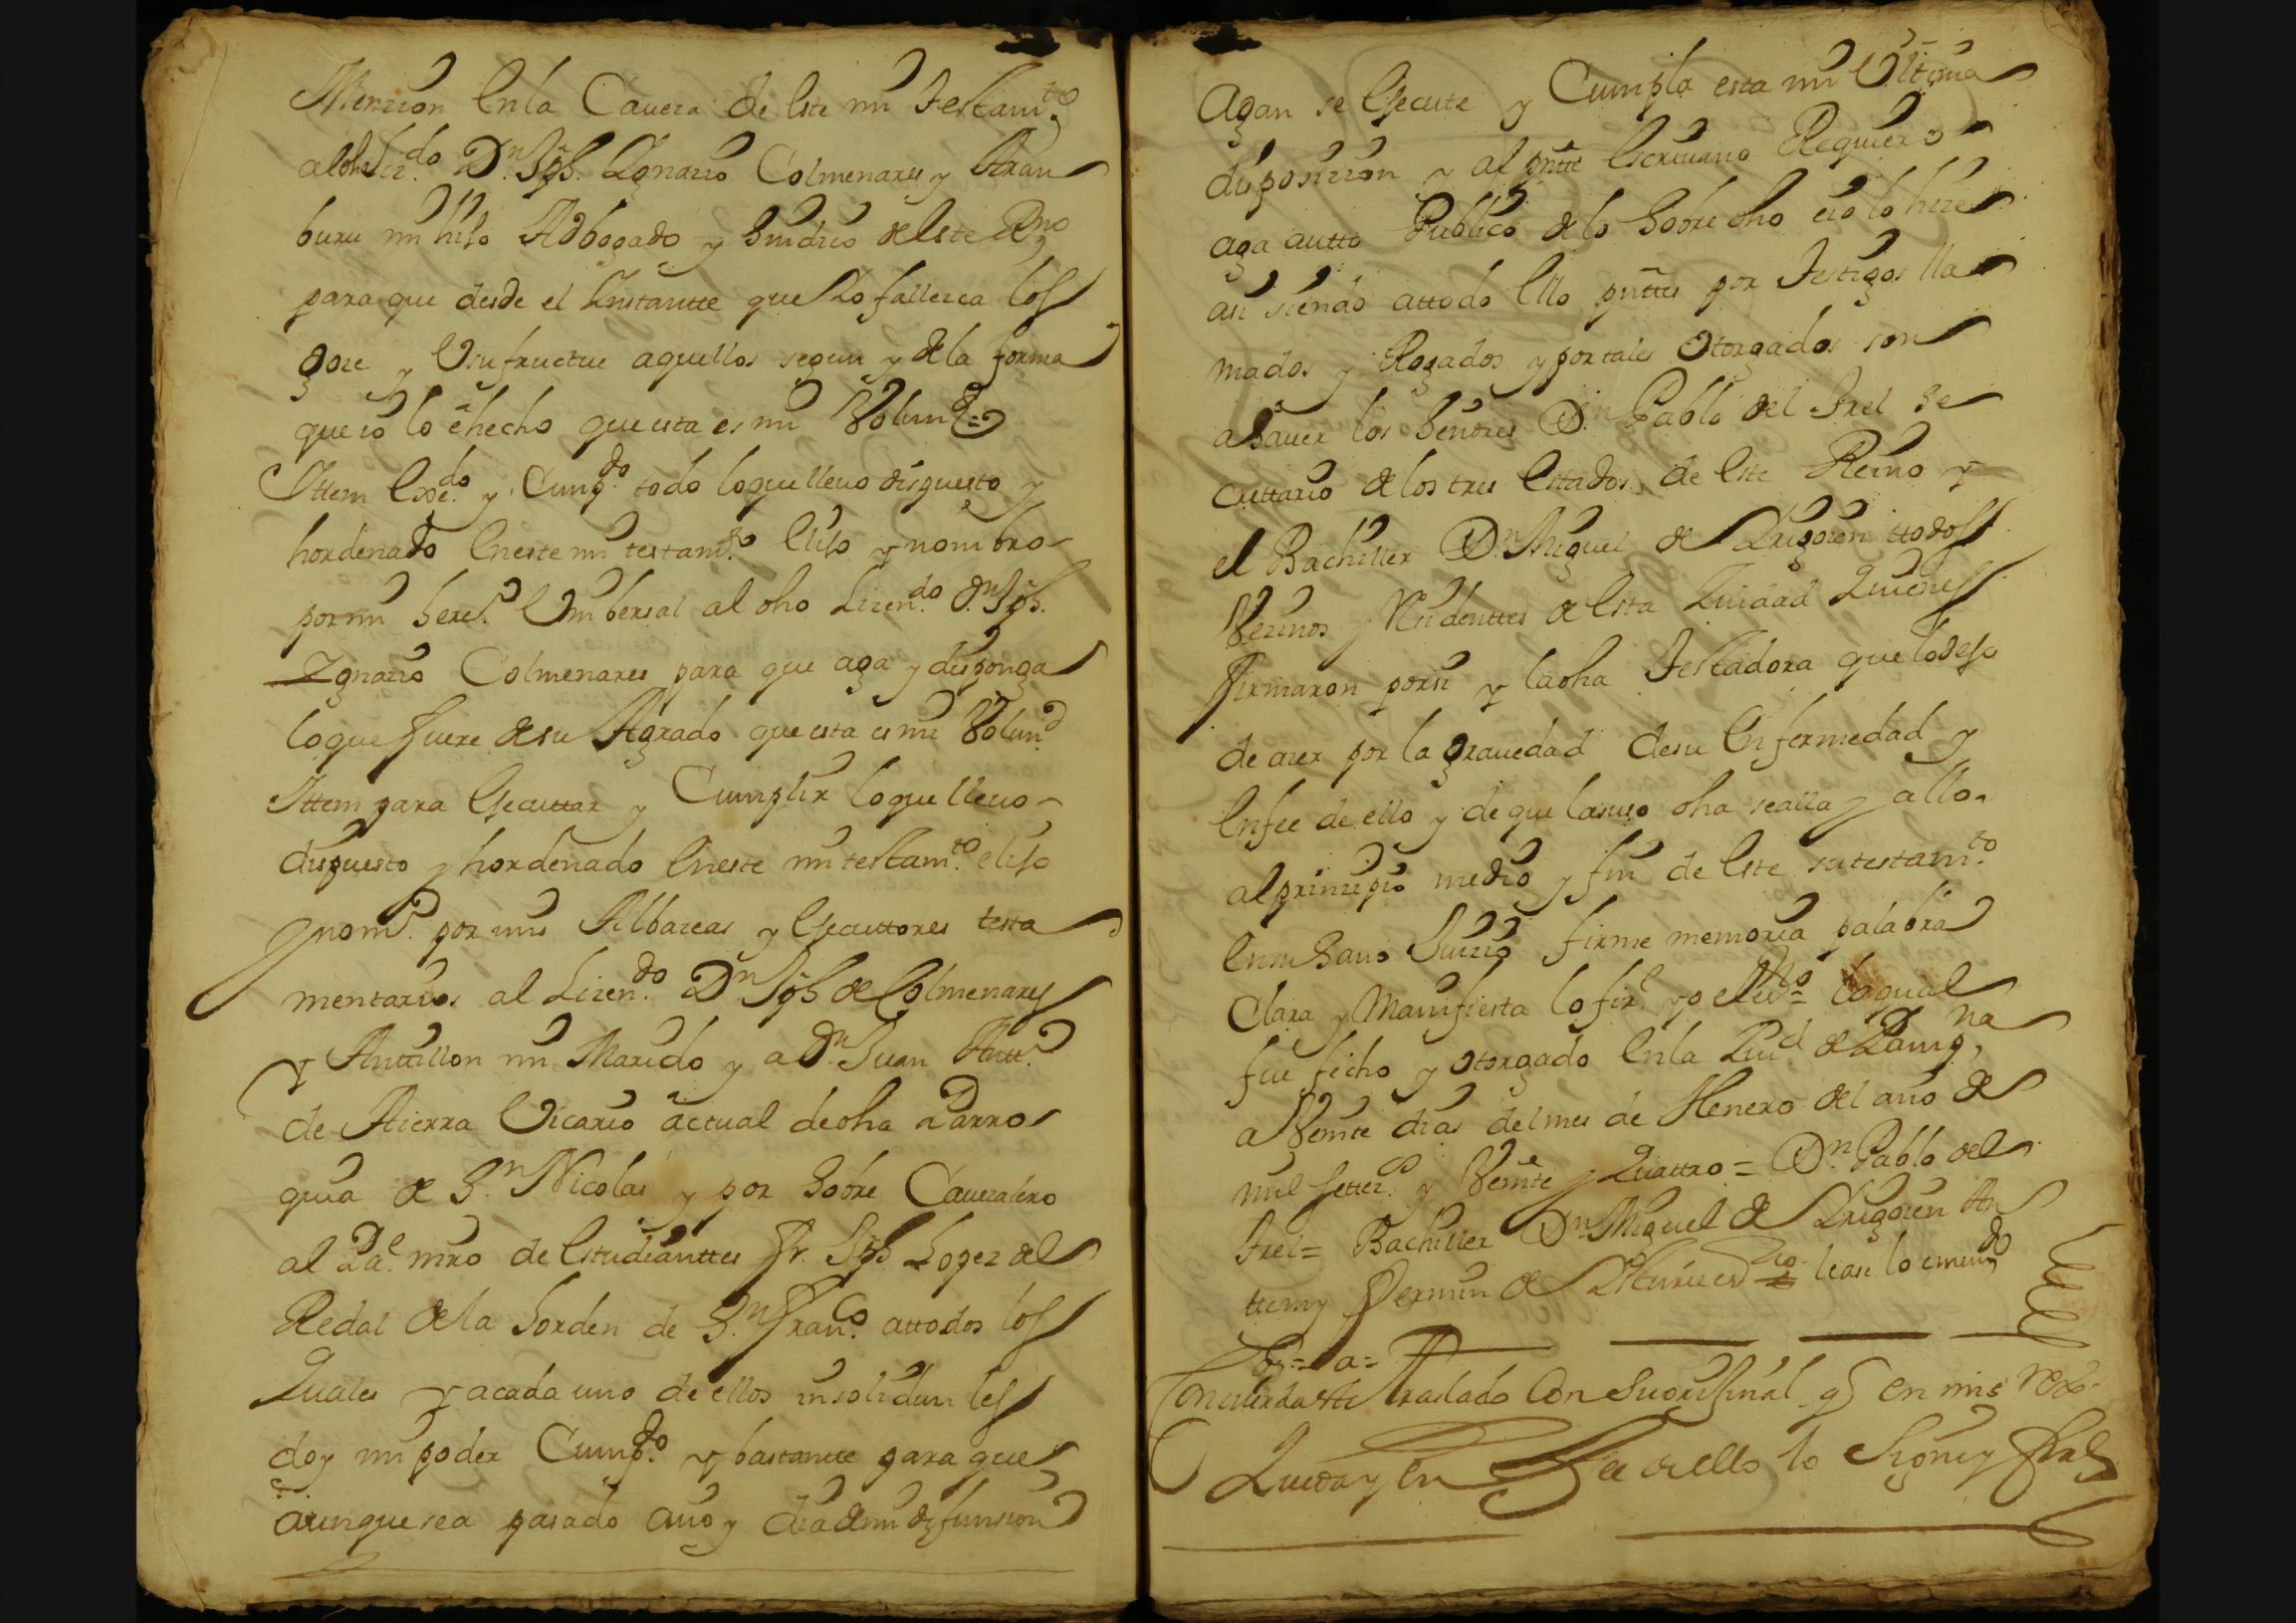 Menzion en la Caueza de este mi Testam.to
al dho Liz.do D.n Jph. Ygnazio Colmenares y Aran
buru mi hijo Adbogado y Sindico de este Rno
para que desde el Ynstantte que Yo fallezca los
goze y Usufructue aquellos segun y de la forma
que io lo e hecho que esta es mi Volun.d =
Ittem Exe.do y Cump.do todo lo que lleuo dispuesto y
hordenado en este mi testam.to elijo y nombro
por mi hered.o Unibersal al dho Lizen.do D.n Jph.
Ygnazio Colmenares para que aga y disponga
lo que fuere de su Agrado que esta es mi Volun.d
Ittem para Ejecuttar y Cumplir lo que lleuo
dispuesto y hordenado en este mi testam.to elijo
y nom.o por mis Albazeas y Ejecuttores testa
mentarios al Lizen.do D.n Jph de Colmenares
y Antillon mi Marido y a D.n Juan Antt.o
de Atierra Vicario actual de dha Parro
quia de S.n Nicolas y por Sobre Cauezalero
al Pa.e mro de Estudianttes Fr. Jph Lopez del
Redal de la horden de S.n Fran.co a ttodos los
Quales y a cada uno de ellos insolidun les
doy mi poder Cump.do y bastantte para que
aunque sea pasado año y dia de mi defunsion
Agan se Ejecute y Cumpla esta mi Ultima
disposizion y al pntte Escriuano Requiero
aga autto Publico de lo Sobre dho eio lo hize
asi siendo a ttodo ello pnttes por Testigos lla
mados y Rogados y por tales Otorgados son
a Sauer los Señores D.n Pablo del Trel Se
crettario de los tres Estados de este Reino y
el Bachiller D.n Miguel de Yrigoien ttodos
Vezinos y Residenttes de esta Ziudad Quienes
firmaron por si y la dha Testadora que lo dejo
de azer por la grauedad de su Enfermedad y
en fee de ello y de que la suso dha se alla y allo
al prinzipio medio y fin de este su testam.to
en su Sano Juizio firme memoria palabra
Clara y Manifiesta lo fir.e yo el ess.no = la qual
fue fecho y otorgado en la Ziu.d de Pamp.na
a Veinte dias del mes de Henero del año de
mil settez.os y Veinte y Quattro = D.n Pablo del
Trel = Bachiller D.n Miguel de Yrigoien An
ttemy Fermin de Ystúriz es.no = lease lo emen.do
es = a =
Concuerda este traslado Con Su orijinal q en mis rexo.
Queda y en Fee de ello lo Signe y firme